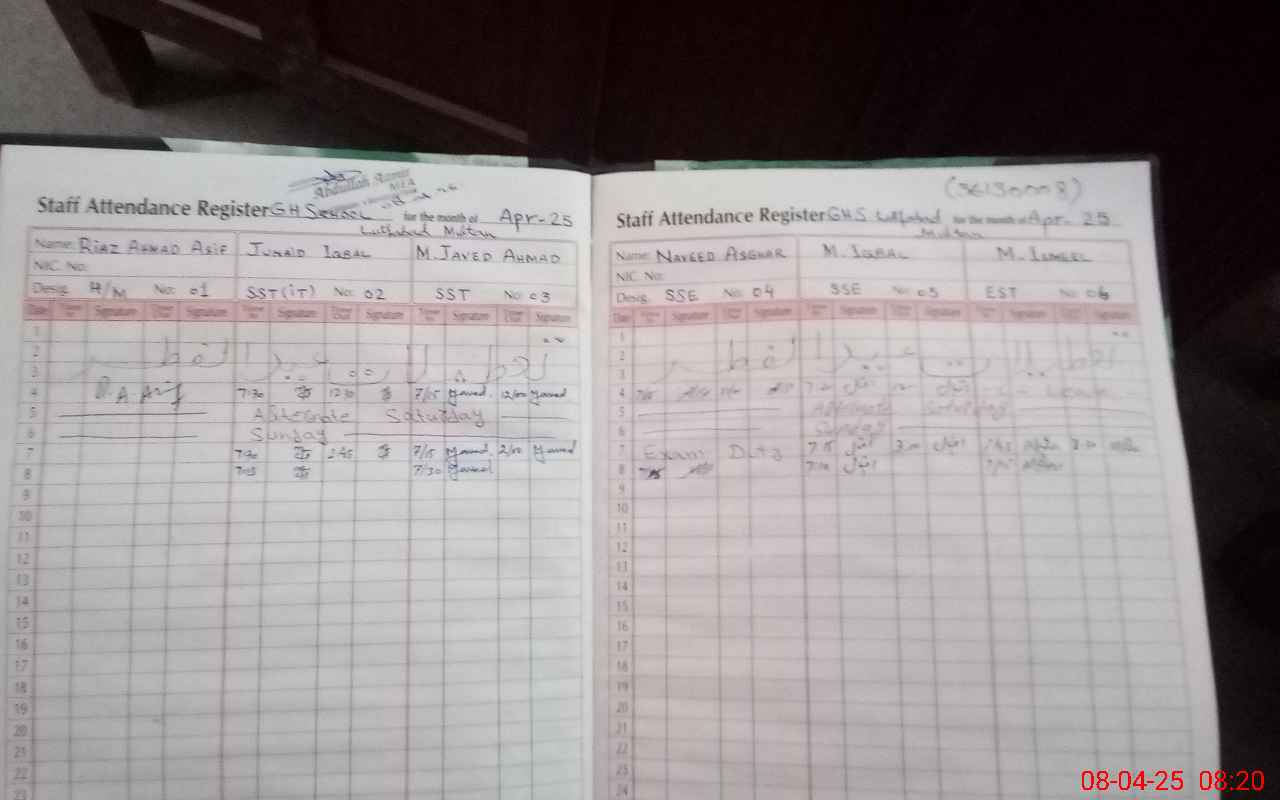 Abdullah Aamir
MEA
Staff Attendance Register GH School for the month of Apr-25
Lutfabad Multan
Name: Riaz Ahmad Asif Junaid Iqbal M. Javed Ahmad
NIC. No:
Desig. H/M No: 01 SST(iT) No: 02 SST No: 03
Date Time In Signature Time Out Signature Time In Signature Time Out Signature Time In Signature Time Out Signature
1
2 تعطیلات عید الفطر
3
4 R.A.Asif 7:30 1230 7/15 Javed 12/00 Javed
5 Alternate Saturday
6 Sunday
7 7:30 2:45 7/15 Javed 2/00 Javed
8 7:05 7/30 Javed
9
10
11
12
13
14
15
16
17
18
19
20
21
22
23
(36130008)
Staff Attendance Register GHS Lutfabad for the month of Apr- 25
Multan
Name: Naveed Asghar M. Iqbal
NIC. No:
Desig. SSE No: 04 SSE No: 05 EST No: 06
Date Time In Signature Time Out Signature Time In Signature Time Out Signature Time In Signature Time Out Signature
1
2 تعطیلات عید الفطر
3
4 اقبال اقبال Leave
5 Alternate Saturday
6 Sunday
7 Exam Duty 7:15 اقبال 3:00 اقبال
8 7:10 اقبال
9
10
11
12
13
14
15
16
17
18
19
20
21
22
23
24
08-04-25 08:20